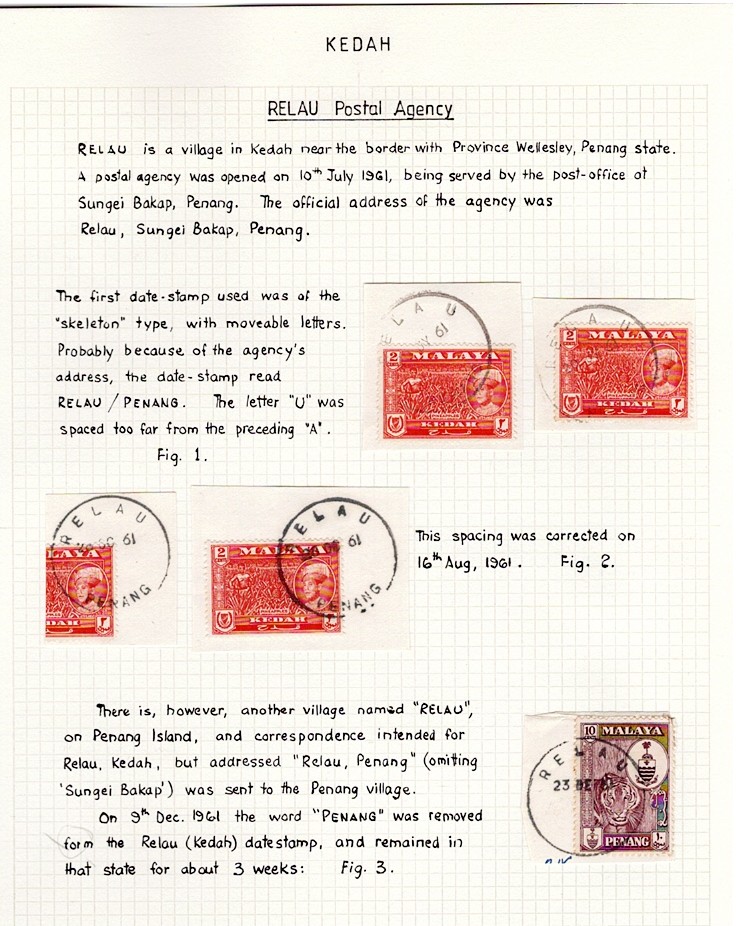 KEDAH
RELAU Postal Agency
RELAU is a village in Kedah near the border with Province Wellesley, Penang state.
A postal agency was opened on 10th July 1961, being served by the post-office at
Sungei Bakap, Penang. The official address of the agency was
Relau, Sungei Bakap, Penang.
The first date-stamp used was of the
"skeleton" type, with moveable letters.
Probably because of the agency's
address, the date-stamp read
RELAU / PENANG. The letter "U" was
spaced too far from the preceding "A".
Fig. 1.
ELAU
61
2 MALAYA
KEDAH
RELAU
2 MALAYA
KEDAH
RELAU
61
PENANG
RELAU
61
2 MALAYA
KEDAH
PENANG
This spacing was corrected on
16th Aug, 1961. Fig. 2.
There is, however, another village named "RELAU",
on Penang Island, and correspondence intended for
Relau, Kedah, but addressed "Relau, Penang" (omitting
'Sungei Bakap') was sent to the Penang village.
On 9th Dec. 1961 the word "PENANG" was removed
form the Relau (Kedah) datestamp, and remained in
that state for about 3 weeks: Fig. 3.
10 MALAYA
RELAU
23 DE 61
PENANG